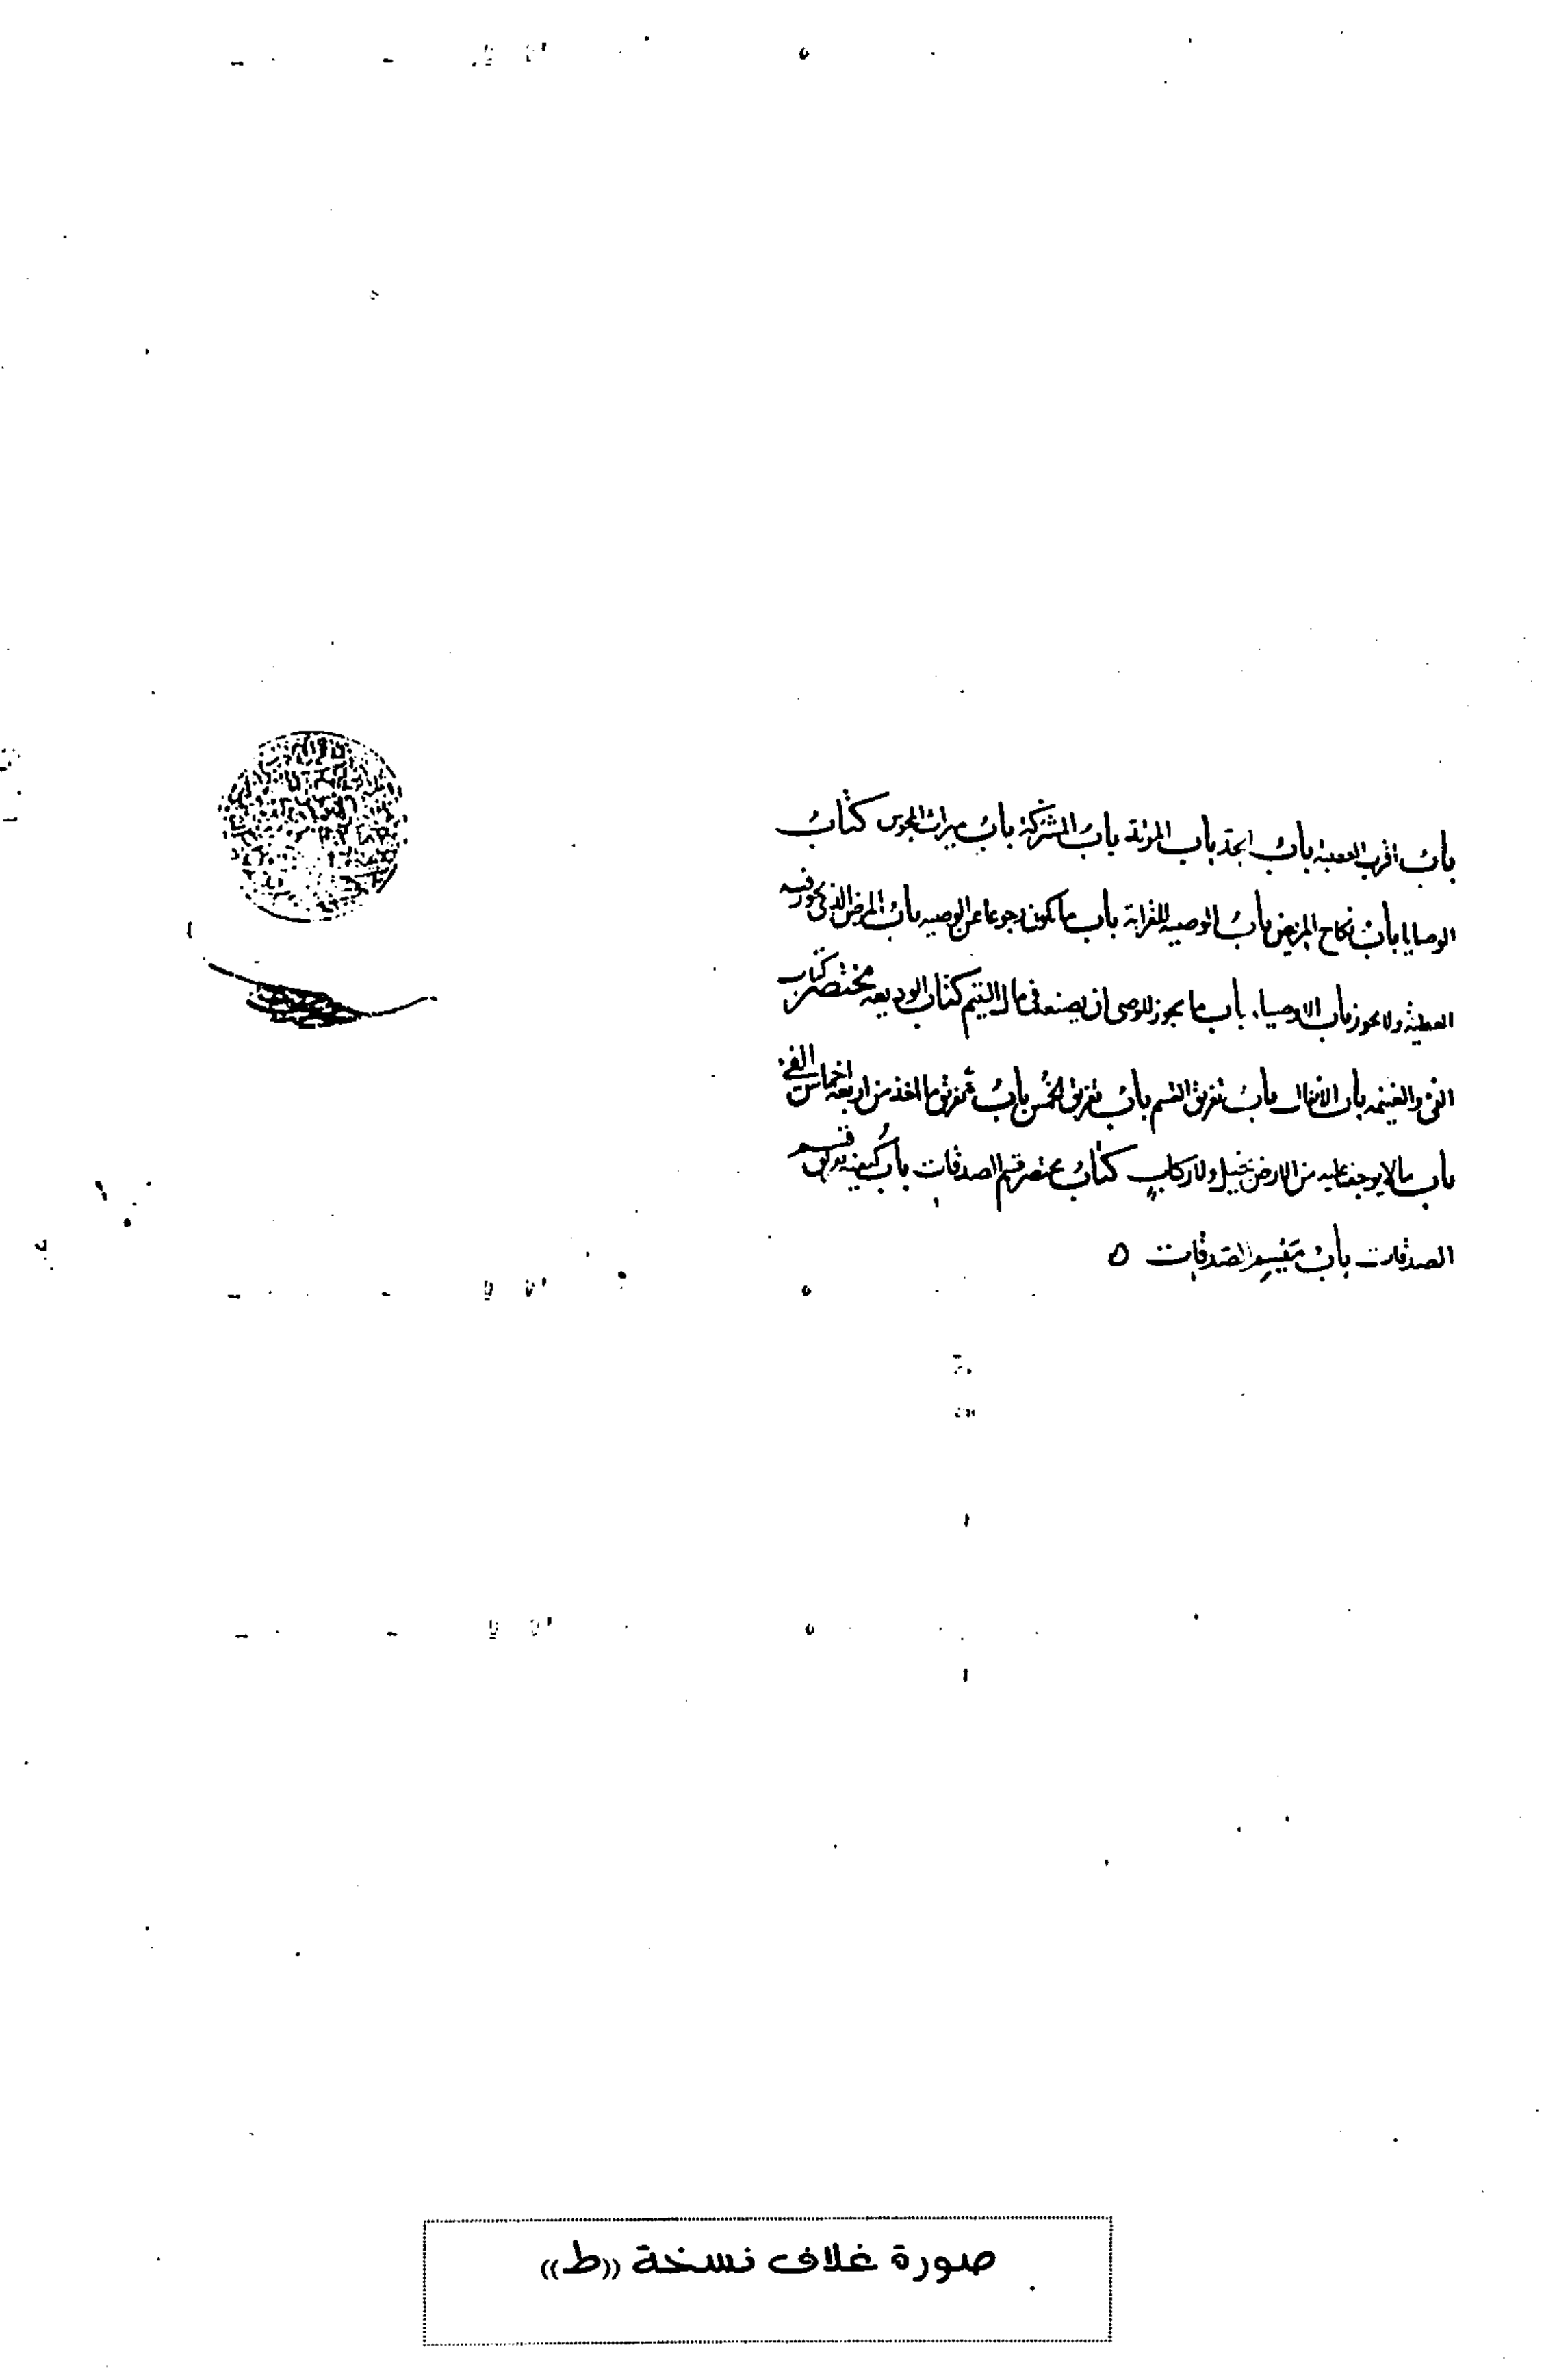 باب اقرب العصبة باب الجد باب المرتد باب المشركة باب ميراث المجوس كتاب
الوصايا باب نكاح المريض باب الوصيه للقرابة باب ما يكون رجوعا عن الوصيه باب المرض الذى تجوز فيه
العطية ولا تجوز باب الاوصياء باب ما يجوز للوصى ان يصنعه فى مال اليتيم كتاب الوديعه مختصر كتاب
الفئ والغنيمه باب الانفال باب تفريق القسم باب تفريق الخمس باب تفريق ما اخذ من اربعة اخماس الفئ
باب ما لا يوجف عليه من الارض بخيل ولا ركاب كتاب مختصر قسم الصدقات باب كيف تفريق قسم
الصدقات باب ميسم الصدقات ه
صورة غلاف نسخة ((ط))